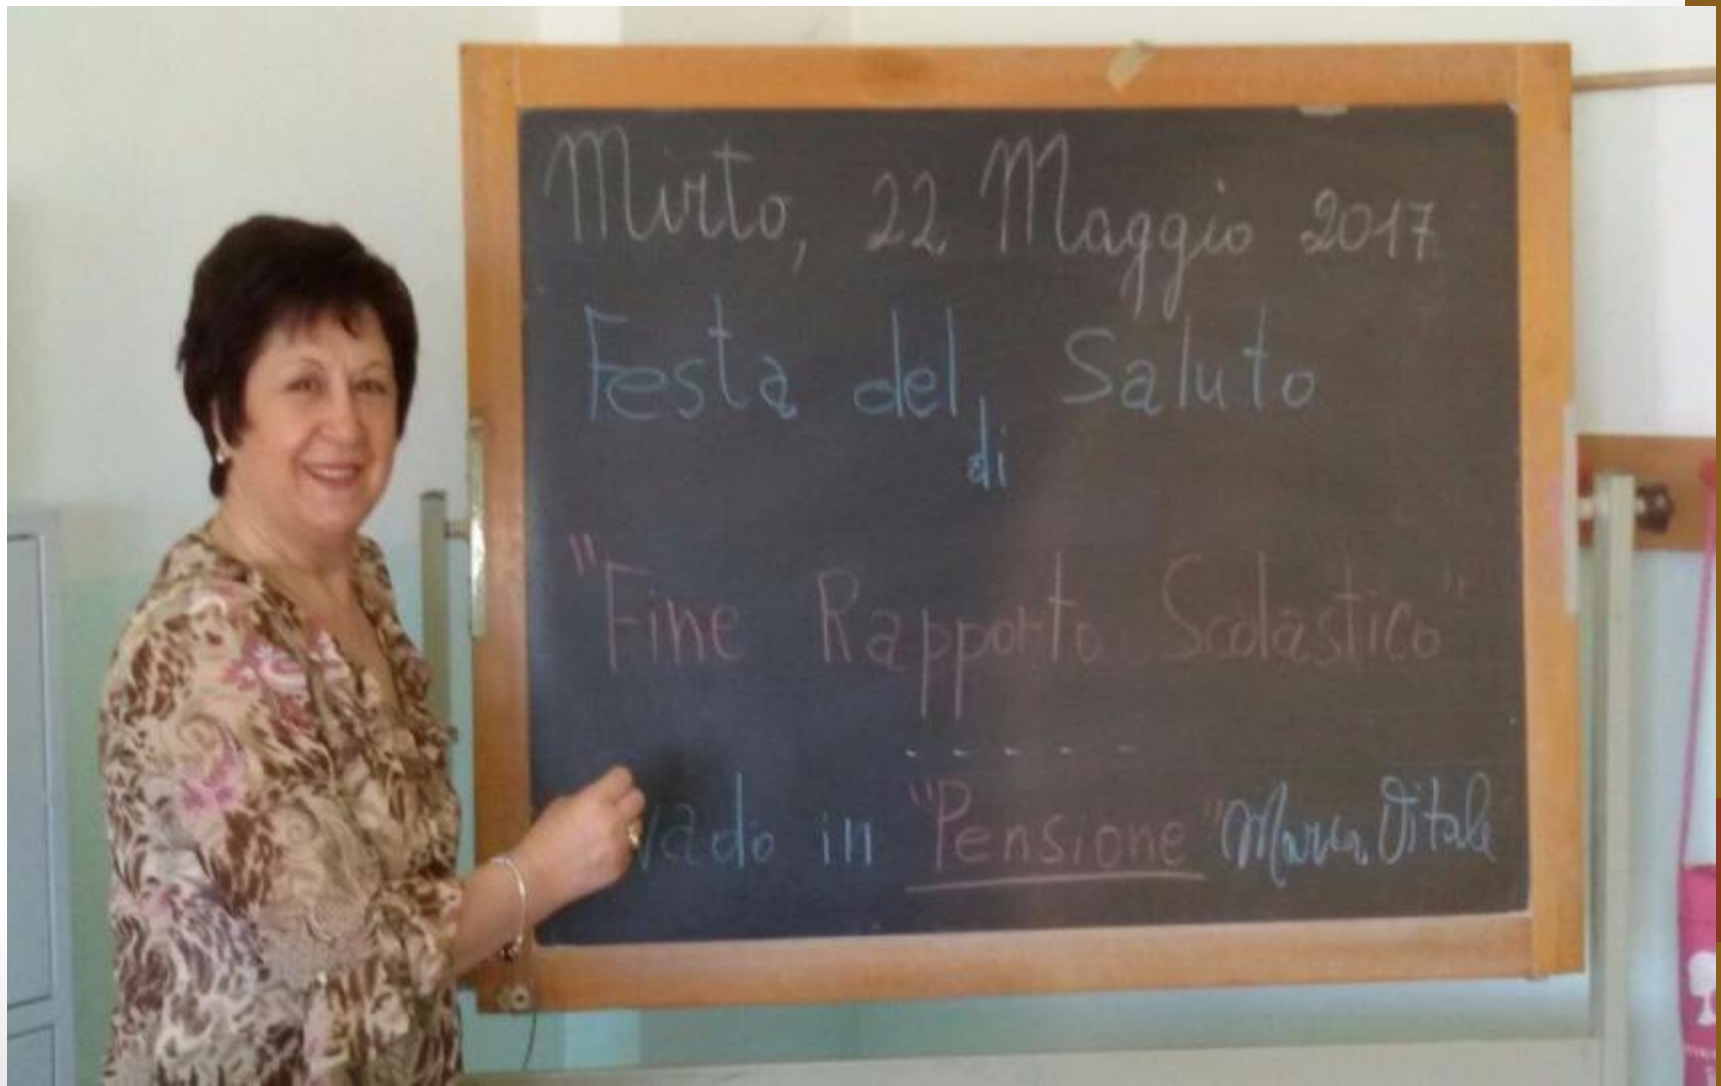 Mirto, 22 Maggio 2017
Festa del Saluto
di
"Fine Rapporto Scolastico"
- - - - -
vado in "Pensione" Maria Vitale